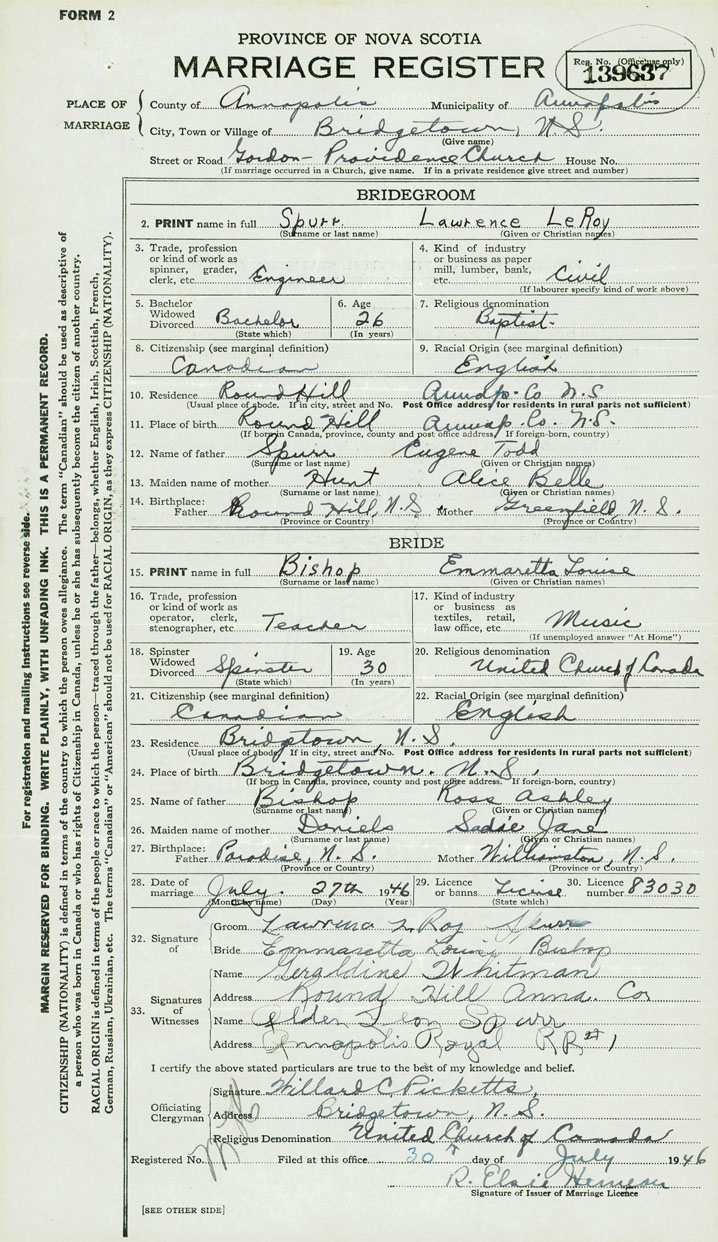 FORM 2
PROVINCE OF NOVA SCOTIA
MARRIAGE REGISTER
Reg. No. (Office use only)
139637
PLACE OF MARRIAGE
County of Annapolis Municipality of Annapolis
City, Town or Village of Bridgetown, N.S.
(Give name)
Street or Road Gordon-Providence Church House No.
(If marriage occurred in a Church, give name. If in a private residence give street and number)
BRIDEGROOM
2. PRINT name in full Spurr Lawrence LeRoy
(Surname or last name) (Given or Christian names)
3. Trade, profession or kind of work as spinner, grader, clerk, etc. Engineer
4. Kind of industry or business as paper mill, lumber, bank, etc. Civil
(If labourer specify kind of work above)
5. Bachelor Widowed Divorced Bachelor
(State which)
6. Age 26
(In years)
7. Religious denomination
Baptist
8. Citizenship (see marginal definition)
Canadian
9. Racial Origin (see marginal definition)
English
10. Residence Round Hill Annap. Co N.S
(Usual place of abode. If in city, street and No. Post Office address for residents in rural parts not sufficient)
11. Place of birth Round Hill Annap. Co. N.S.
(If born in Canada, province, county and post office address. If foreign-born, country)
12. Name of father Spurr Eugene Todd
(Surname or last name) (Given or Christian names)
13. Maiden name of mother Hunt Alice Belle
(Surname or last name) (Given or Christian names)
14. Birthplace: Father Round Hill, N.S. Mother Greenfield, N.S.
(Province or Country) (Province or Country)
BRIDE
15. PRINT name in full Bishop Emmaretta Louise
(Surname or last name) (Given or Christian names)
16. Trade, profession or kind of work as operator, clerk, stenographer, etc. Teacher
17. Kind of industry or business as textiles, retail, law office, etc. Music
(If unemployed answer "At Home")
18. Spinster Widowed Divorced Spinster
(State which)
19. Age 30
(In years)
20. Religious denomination
United Church of Canada
21. Citizenship (see marginal definition)
Canadian
22. Racial Origin (see marginal definition)
English
23. Residence Bridgtown, N.S.
(Usual place of abode. If in city, street and No. Post Office address for residents in rural parts not sufficient)
24. Place of birth Bridgetown. N.S.
(If born in Canada, province, county and post office address. If foreign-born, country)
25. Name of father Bishop Ross Ashley
(Surname or last name) (Given or Christian names)
26. Maiden name of mother Daniels Sadie Jane
(Surname or last name) (Given or Christian names)
27. Birthplace: Father Paradise, N.S. Mother Williamston, N.S.
(Province or Country) (Province or Country)
28. Date of marriage July. 27th 1946
(Month by name) (Day) (Year)
29. Licence or banns License
(State which)
30. Licence number 83030
32. Signature of
Groom Lawrence L Roy Spurr
Bride Emmaretta Louise Bishop
33. Signatures of Witnesses
Name Geraldine Whitman
Address Round Hill Anna. Co
Name Alden Leon Spurr
Address Annapolis Royal RR#1
I certify the above stated particulars are true to the best of my knowledge and belief.
Officiating Clergyman
Signature Willard C. Picketts,
Address Bridgetown, N.S.
Religious Denomination United Church of Canada
Registered No. Filed at this office 30 day of July 1946
R. Elsie
Signature of Issuer of Marriage Licence
[SEE OTHER SIDE]
For registration and mailing instructions see reverse side.
MARGIN RESERVED FOR BINDING. WRITE PLAINLY, WITH UNFADING INK. THIS IS A PERMANENT RECORD.
CITIZENSHIP (NATIONALITY) is defined in terms of the country to which the person owes allegiance. The term "Canadian" should be used as descriptive of
a person who was born in Canada or who has rights of Citizenship in Canada, unless he or she has subsequently become the citizen of another country.
RACIAL ORIGIN is defined in terms of the people or race to which the person—traced through the father—belongs, whether English, Irish, Scottish, French,
German, Russian, Ukrainian, etc. The terms "Canadian" or "American" should not be used for RACIAL ORIGIN, as they express CITIZENSHIP (NATIONALITY).